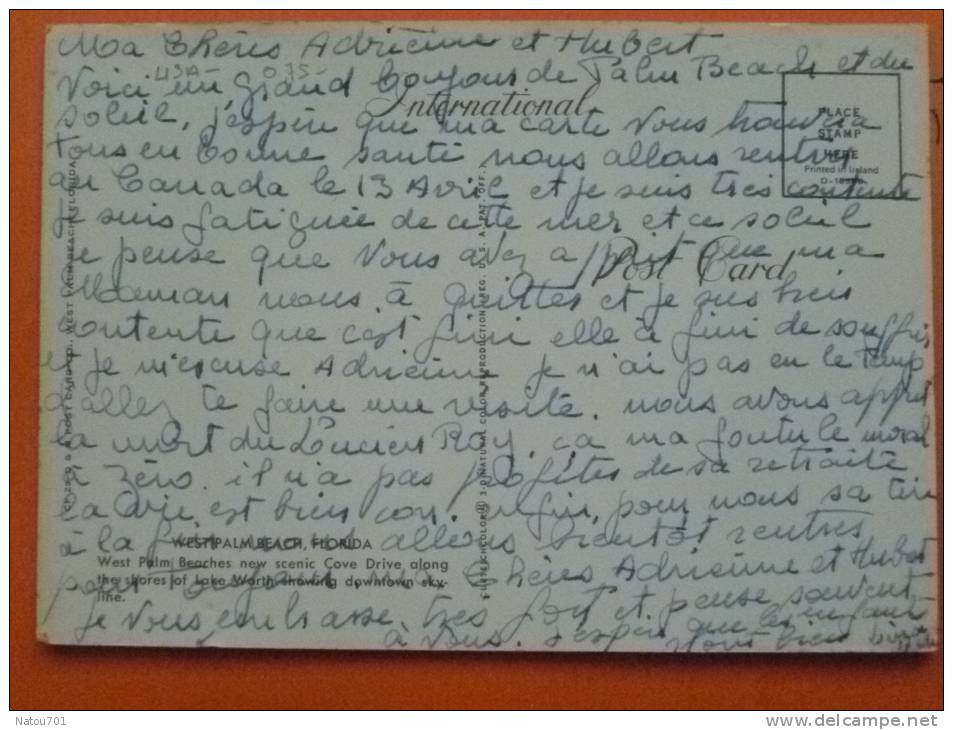 Ma Chères Adriènne et Hubert
USA - 0,75 -
Voici un grand Bonjour de Palm Beach et du
International
soleil, j'espère que ma carte vous trouvra
PLACE
STAMP
HERE
Printed in Ireland
tous en bonne santé nous allons rentrer
au Canada le 13 Avril et je suis très contente
je suis fatiguée de cette mer et ce soleil
je pense que vous avez appris que ma
Post Card
Maman nous à quitter et je suis bien
contente que c'est fini elle à fini de souffrir
et je m'escuse Adriènne je n'ai pas eu le temp
d'allez te faire une visite. nous avons appris
la mort du Lucien Roy, ça ma foutu le moral
à zéro. il n'a pas profiter de sa retraite
la vie est bien con. enfin, pour nous sa tire
à la fin allons bientôt rentrer
WEST PALM BEACH, FLORIDA
West Palm Beaches new scenic Cove Drive along
the shores of Lake Worth showing downtown sky-
line.
pour Chères Adriènne et Hubert
je vous embrasse très fort et pense souvent
à vous. J'espère que les enfants
vont bien
POST CARD CO., WEST PALM BEACH, FLORIDA
3-D NATURAL COLOR REPRODUCTION REG. U.S.A. PAT. OFF.
Natou701
www.delcampe.net